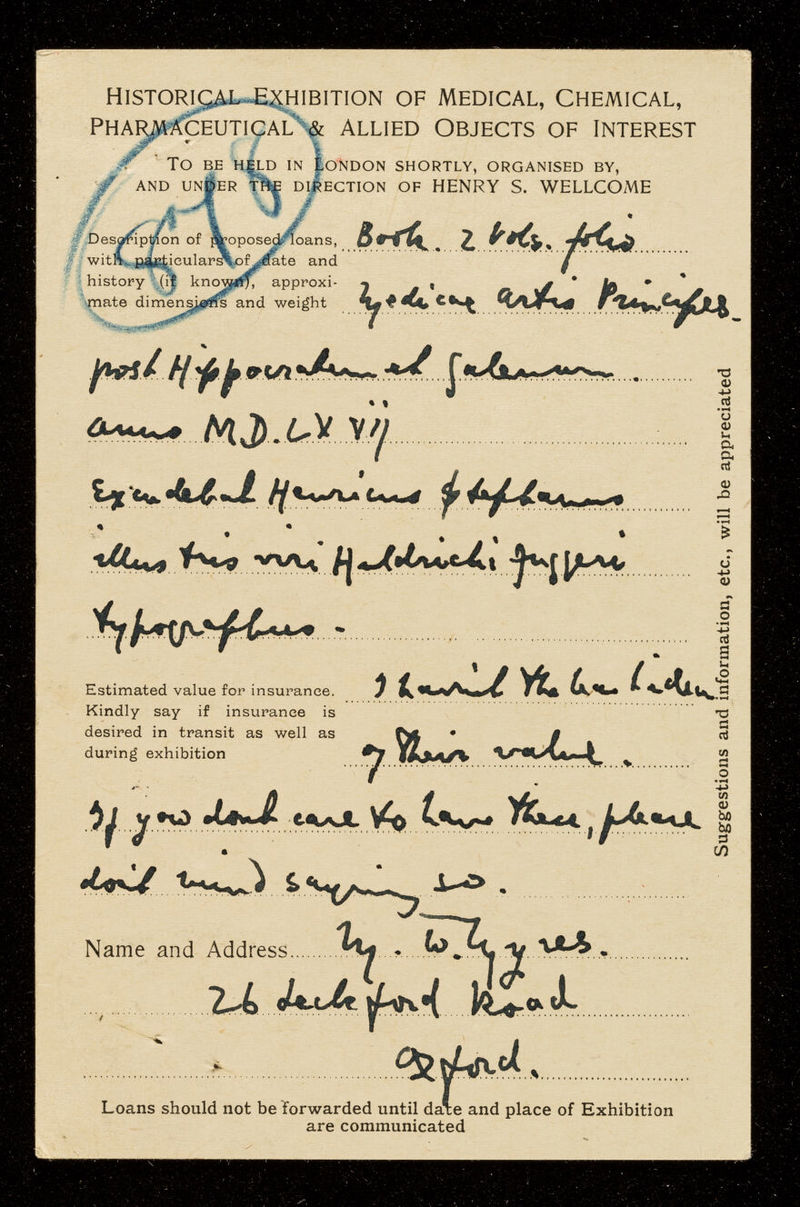 HISTORICAL EXHIBITION OF MEDICAL, CHEMICAL,
PHARMACEUTICAL & ALLIED OBJECTS OF INTEREST
TO BE HELD IN LONDON SHORTLY, ORGANISED BY,
AND UNDER THE DIRECTION OF HENRY S. WELLCOME
Description of proposed loans, Book. 2 Vols. folio
with particulars of date and
history (if known), approxi-
mate dimensions and weight Medicae artis Principes
post Hippocratem et Galenum.
anno M.D.LXVII
Excudebat Henricus Stephanus
illustris viri Huldrichi Fuggeri
typographus -
Estimated value for insurance. I haven't the
Kindly say if insurance is
desired in transit as well as
during exhibition of their value.
If you dont care to have these, please
don't mind saying so.
Name and Address
26 Leckford Road
Oxford.
Loans should not be forwarded until date and place of Exhibition
are communicated
Suggestions and information, etc., will be appreciated